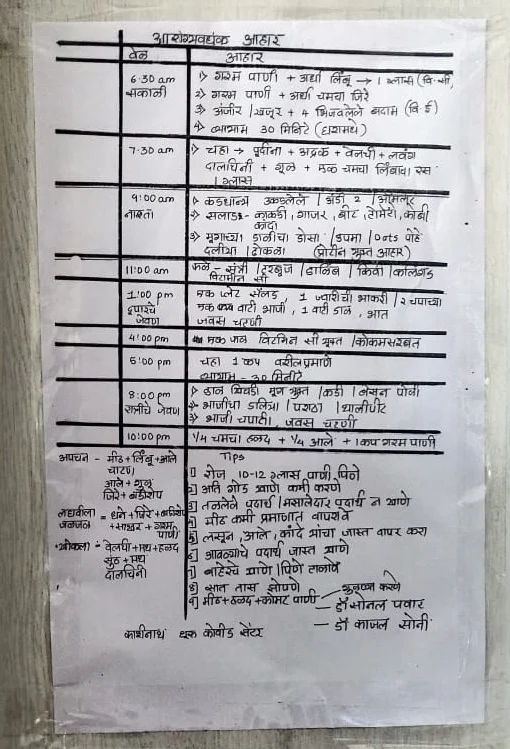 आरोग्यवर्धक आहार
वेळ आहार
6:30 am सकाळी
1) गरम पाणी + अर्धा लिंबू → 1 ग्लास (वि.सी)
2) गरम पाणी + अर्धा चमचा जिरे
3) अंजीर / खजूर + 4 भिजवलेले बदाम (वि.ई)
4) व्यायाम 30 मिनिटे
7:30 am
1) चहा → पुदीना + अद्रक + वेलची + लवंग
दालचिनी + गूळ + एक चमचा लिंबाचा रस
1 ग्लास
9:00 am नाश्ता
1) कडधान्य उकडलेले / अंडी 2 / ऑम्लेट
2) सलाड - काकडी, गाजर, बीट, टोमॅटो, कोबी
कांदा
3) मुगाच्या डाळीचा डोसा / उपमा / Oats पोहे
दलीया / ढोकळा (प्रोटीन युक्त आहार)
11:00 am फळे - संत्री / टरबूज / डाळिंब / किवी / कलिंगड
विटामीन सी
1:00 pm दुपारचे जेवण
एक प्लेट सॅलड, 1 ज्वारीची भाकरी / 2 चपात्या
एक वाटी भाजी, 1 वाटी डाळ, भात
जवस चटणी
4:00 pm एक फळ विटामिन सी युक्त / कोकमसरबत
5:00 pm चहा 1 कप वरीलप्रमाणे
व्यायाम - 30 मिनीटे
8:00 pm रात्रीचे जेवण
1) डाळ खिचडी मूग युक्त / कढी / बेसन पोळी
2) भाजीचा दलिया / पराठा / थालीपीट
3) भाजी चपाती, जवस चटणी
10:00 pm 1/4 चमचा हळद + 1/4 आले + 1 कप गरम पाणी
अपचन - मीठ + लिंबू + आले
चाटण
आले + गूळ
जिरे + बडीशेप
जळजळ = धने + जिरे + बडीशेप
+ साखर + गरम
पाणी
खोकला - वेलची + मध + हळद
सुंठ + मध
दालचिनी
Tips
1) रोज 10-12 ग्लास पाणी पिणे
2) अति गोड खाणे कमी करणे
3) तळलेले पदार्थ / मसालेदार पदार्थ न खाणे
4) मीठ कमी प्रमाणात वापरावे
5) लसून, आले, कांदे यांचा जास्त वापर करा
6) आवळ्याचे पदार्थ जास्त खाणे
7) बाहेरचे खाणे / पिणे टाळावे
8) सात तास झोपणे
9) मीठ + हळद + कोमट पाणी - गुळण्या करणे
- डॉ सोनल पवार
- डॉ काजल सोनी
काशीनाथ धरू कोवीड सेंटर